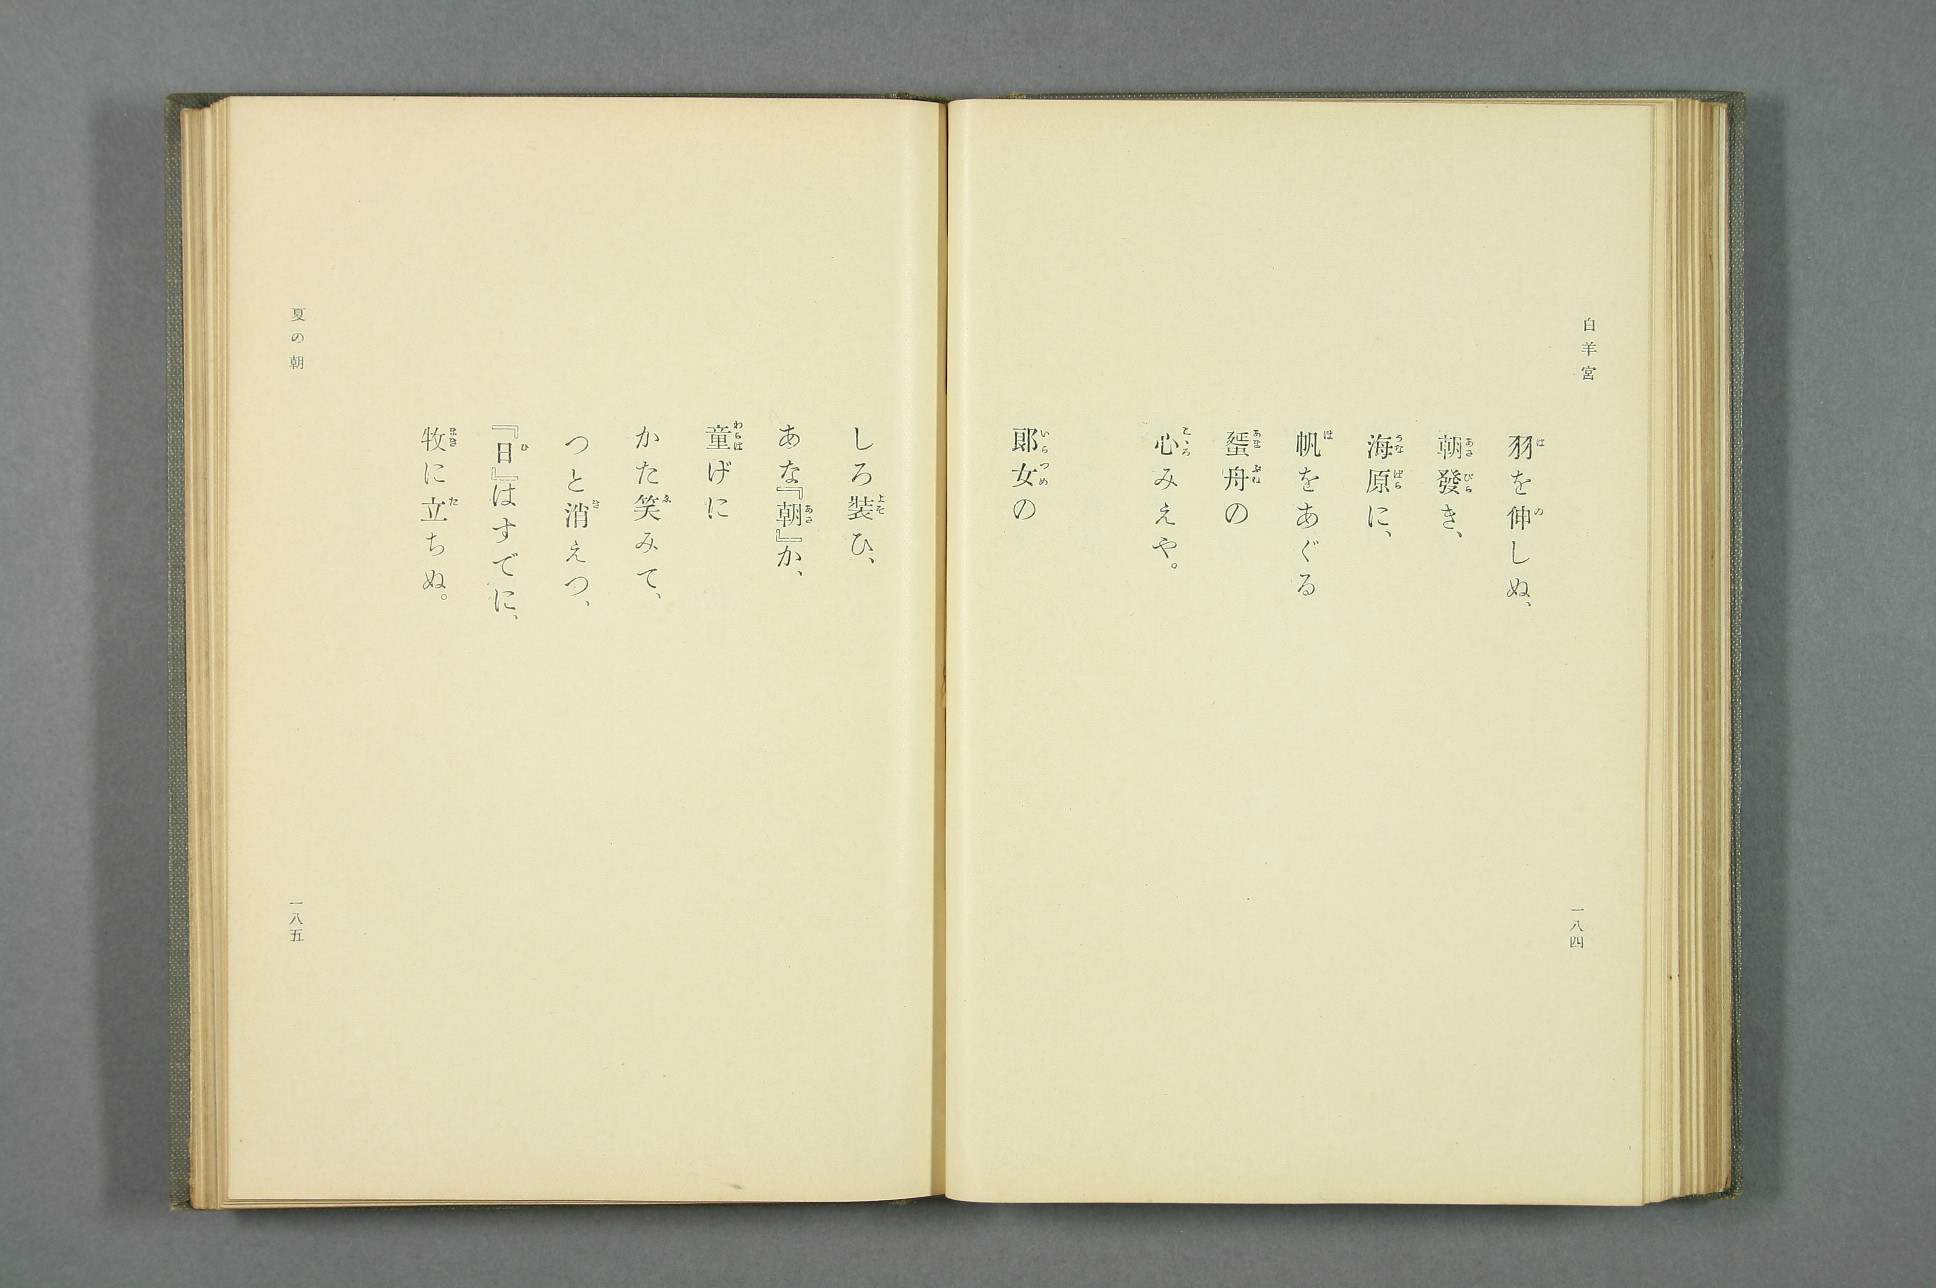 白羊宮
羽を伸しぬ、
朝發き、
海原に、
帆をあぐる
蜑舟の
心みえや。
郞女の
一八四
しろ裝ひ、
あな『朝』か、
童げに
かた笑みて、
つと消えつ、
『日』はすでに、
牧に立ちぬ。
夏の朝
一八五